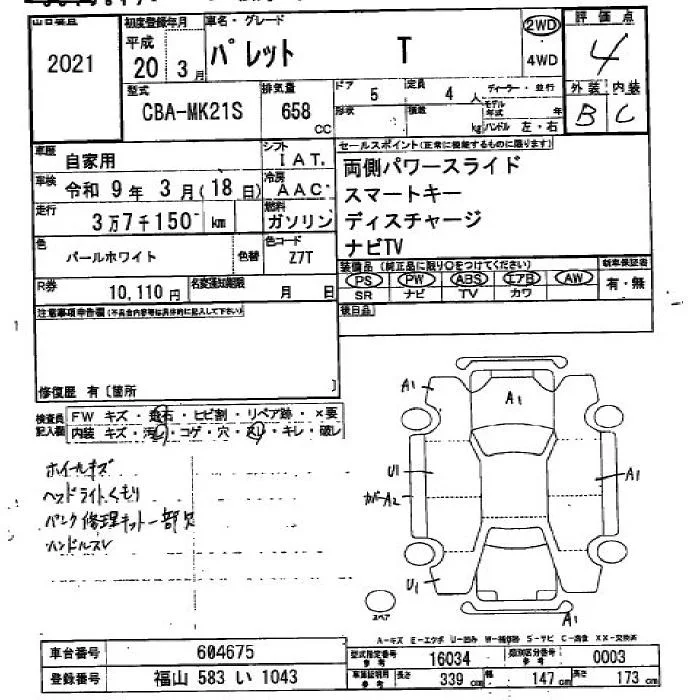 2021
初度登録年月
平成
20年 3月
車名・グレード
パレット T
2WD
4WD
評価点
4
外装 内装
B C
型式
CBA-MK21S
排気量
658 cc
ドア 5
定員 4人
形状
積数 kg
ディーラー・並行
モデル年式 年
ハンドル 左・右
車歴 自家用
シフト IAT.
車検 令和 9年 3月(18日)
冷房 AAC
走行 3万7千150 km
燃料 ガソリン
色 パールホワイト 色替
色コード Z7T
R券 10,110円
名変通知期限 月 日
セールスポイント(正常に機能するものに限ります)
両側パワースライド
スマートキー
ディスチャージ
ナビTV
装備品(純正品に限り○をつけてください)
PS PW ABS エアB AW
SR ナビ TV カワ
新車保証書
有・無
後日品
注意事項申告欄(不具合内容等は具体的に記入して下さい)
修復歴 有〔箇所 〕
検査員記入欄
FW キズ・飛石・ヒビ割・リペア跡・×要
内装 キズ・汚レ・コゲ・穴・スレ・キレ・破レ
ホイールキズ
ヘッドライトくもり
パンク修理キット一部欠
ハンドルスレ
A1
A1
U1
カバーA2
A1
U1
A1
スペア
A-キズ E-エクボ U-凹み W-補修跡 S-サビ C-腐食 XX-交換済
車台番号 604675
登録番号 福山 583 い 1043
型式指定番号 参考 16034
類別区分番号 参考 0003
車庫証明用 参考 長さ 339cm 幅 147cm 高さ 173cm